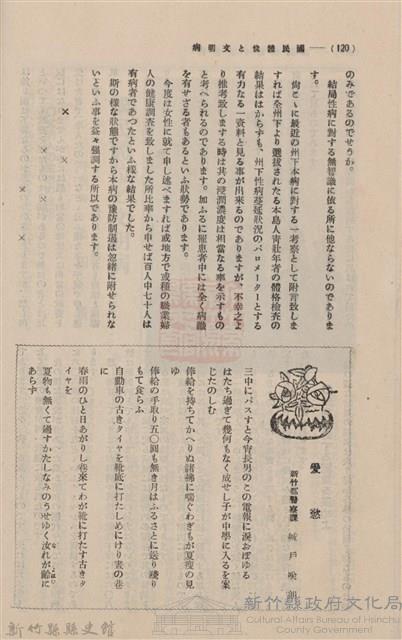 (120) ──國民體位と文明病
のみであるのでせうか。
結局性病に對する無智識に依る所に他ならないのであります。
尚こゝに最近の州下本病に對する一考察として附言致しま
すれば全州下より選拔されたる本島人青壯年者の體格檢査の
結果はからずも、州下性病蔓延狀況のバロメーターとする
有力なる一資料と見る事が出來るのでありますが、不幸之よ
り推考致します時は其の浸潤濃度は相當なる事を示すもの
と考へられるのであります。加ふるに罹患者中には全く病識
を有せざる者もあるといふ狀勢であります。
今度は女性に就て申し述べますれば或地方で或種の職業婦
人の健康調査を致しました所比率から申せば百人中七十人は
有病者であつたといふ樣な結果でした。
斯の樣な狀態ですから本病の豫防制遏は忽緖に附せられな
いといふ事を益々强調する所以であります。
× × × ×
愛愁
新竹郡警察課 城戶
三中にパスすと今宵長男のこの電報に淚おぼゆる
はたち過ぎて幾何もなく成せし子が中學に入るを案
じたのしむ
俸給を持ちてかへりぬ諸拂に喘ぐわぎもが夏瘦の見
ゆ
俸給の手取り五〇圓も無き月はふるさとに送り殘り
もて食らふ
自動車の古きタイヤを靴底に打たしめにけり裏の巷
に
春雨のひと日あがりし巷來てわが靴に打たす古きタ
イヤを
夏物も無くて過すかたしなみのうせゆく汝れが齡に
あらず
新竹縣縣史館
新竹縣政府文化局
Cultural Affairs Bureau of Hsinchu
County Government